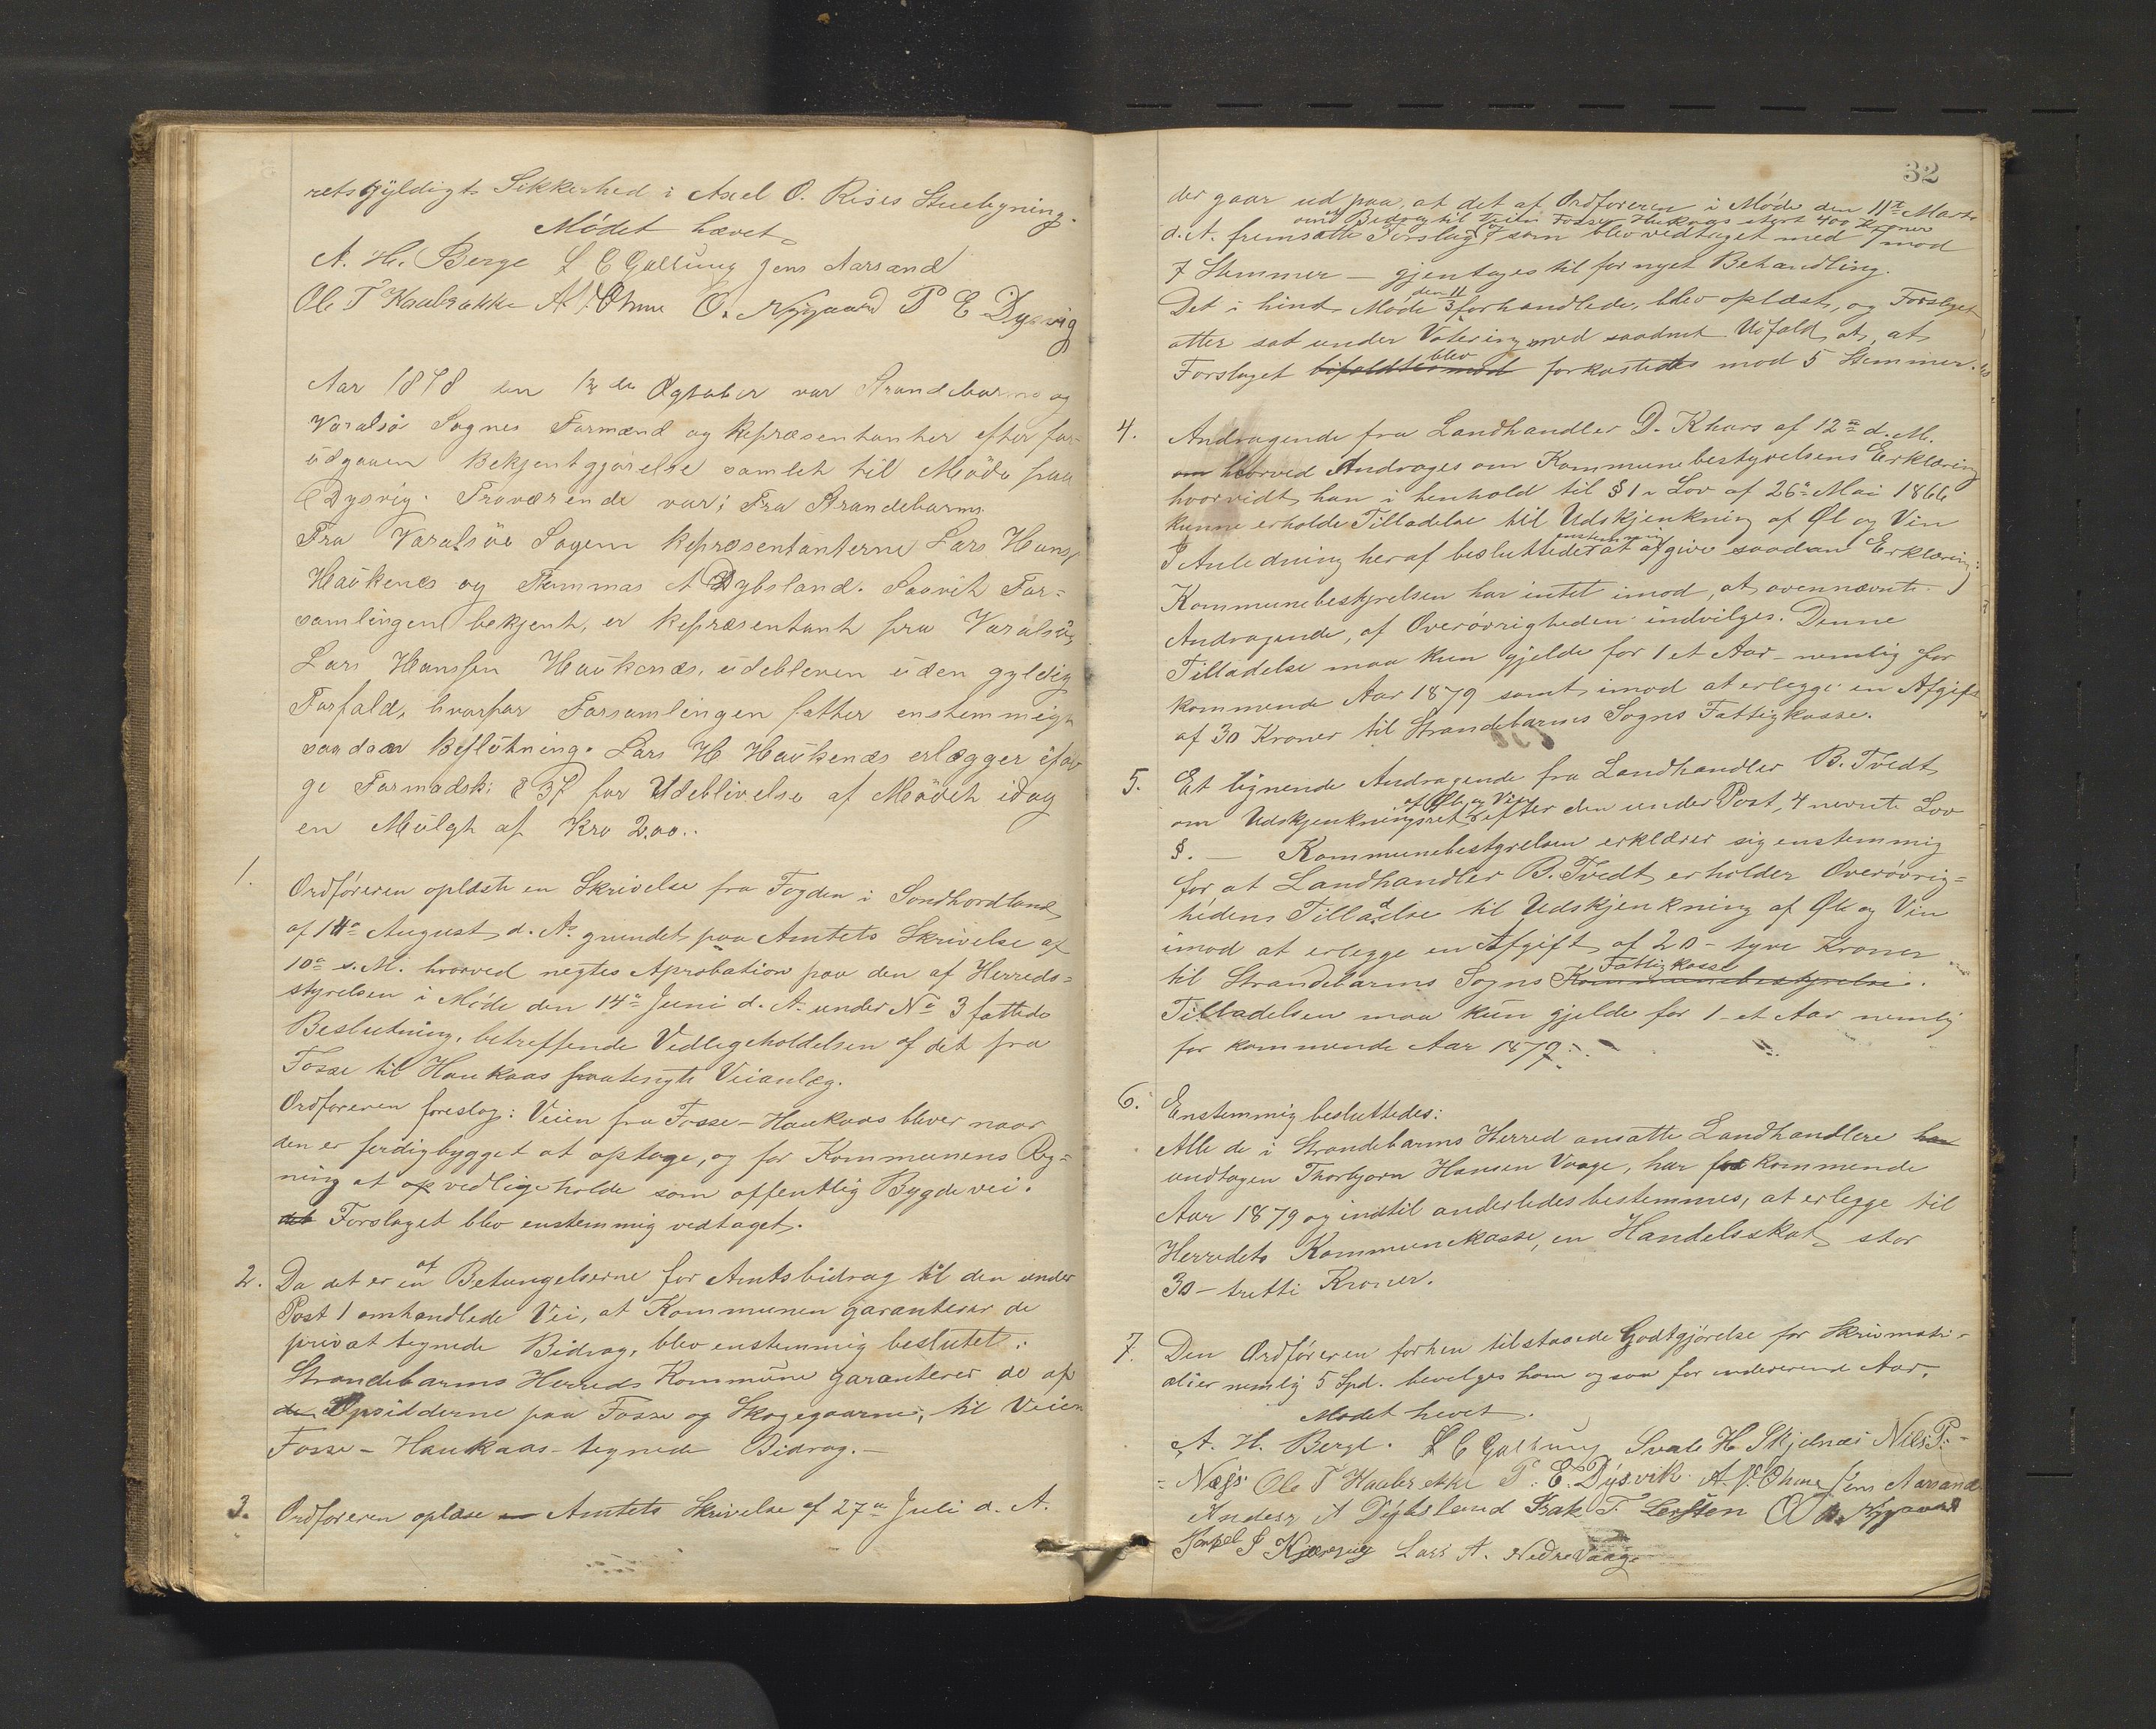 retsgyldigt Sikkerhed i Axel O. Rises Stuebygning.
Mödet hævet
A. H. Berge L C Galtung Jens Aarsand
Ole T Haabrække A Ohme O. Nygaard P E Dysvig
Aar 1878 den de Ogtober var Strandebarms og
Varalsö Sognes Formænd og Repræsentanter efter for-
udgaaen Bekjentgjörelse samlet til Möde paa
Dysvig. Fraværende var; Fra Strandebarms
Fra Varalsöe Sogem Repræsentanterne Lars Hans
Haükenes og Tommas A Dybsland. Saavit For-
samlingen bekjent, er Repræsentant fra Varalsöe,
Lars Hanssen Haükenæs, udebleven uden gyldig
Forfald, hvorfor Forsamlingen fatter enstemmigt
saadaan Beslutning. Lars H Haükenæs erlægger ifør
ge Formadsk: § 37 for Udeblivelse af Mödet idag
en Mülgt af Kro 2.00..
1. Ordföreren oplæste en Skrivelse fra Fogden i Söndhordland
af 14de August d. A. grundet paa Amtets Skrivelse af
10de s. M. hvorved negtes Aprobation paa den af Herreds-
styrelsen i Möde den 14de Juni d. A. under No 3 fattede
Beslutning, betreffende Vedligeholdelsen af det fra
Fosse til Haukaas paatengte Veianlæg.
Ordföreren foreslog: Veien fra Fosse-Haukaas bliver naar
den er ferdigbygget at optage, og for Kommunens Reg-
ning at op vedligeholde som offentlig Bygdevei.
det Forslaget blev enstemmig vedtaget.
2. Da det er en af Betingelserne for Amtsbidrag til den under
Post 1 omhandlede Vei, at Kommunen garanterer de
privat tegnede Bidrag, blev enstemmig beslutet:
Strandebarms Herreds Kommüne garanterer de af
de Opsidderne paa Fosse og Skogegaarne, til Veien
Fosse - Haukaas - tegnede Bidrag. -
3. Ordföreren oplæse en Amtets Skrivelse af 27de Juli d. A.
32
der gaar ud paa, at det af Ordföreren i Möde den 11te Marts
om Bidrag til Veien Fosse Haukaas stort 400 Kroner
d. A. fremsatte Forslag, som blev vedtaget med 7 mod
7 Stemmer - gjentages til fornyet Behandling.
den 11/3
Det i hint Möde forhandlede, blev oplæst, og Forslaget
atter sat under Votering med saadant Udfald, at
blev
Forslaget bifaldtes mod forkastedes mod 5 Stemmer.
4. Andragende fra Landhandler D. Khars af 12de d. M.
om hvorved Andrages om Kommunebestyrelsens Erklæring
hvorvidt han i henhold til § 1 Lov af 26de Mai 1866
kunne erholde Tilladelse til Udskjenkning af Øl og Vin
enstemmig
I Anledning heraf besluttedes at afgive saadan Erklæring:
Kommunebestyrelsen har intet imod, at ovennævnte
Andragende, af Overövrigheden indvilges. Denne
Tilladelse maa kun gjelde for 1 et Aar - nemlig for
kommende Aar 1879 samt imod at erlegge en Afgift
af 30 Kroner til Strandebarms Sogns Fattigkasse.
5. Et lignende Andragende fra Landhandler B. Tvedt
af Øl og Vin
om Udskjenkningsret efter den under Post 4 nevnte Lov
§. - Kommunebestyrelsen erklærer sig enstemmig
for at Landhandler B. Tvedt erholder Overövrig-
hedens Tilladelse til Udskjenkning af Øl og Vin
imod at erlegge en Afgift af 20 - tyve Kroner
Fattigkasse
til Strandebarms Sogns Kommunebestyrelse.
Tilladelsen maa kün gjelde for 1 - et Aar nemlig
for kommende Aar 1879.
6. Enstemmig besluttedes:
Alle de i Strandebarms Herred ansatte Landhandlere har
undtagen Thorbjørn Hansen Vaage, har for kommende
Aar 1879 og indtil anderledes bestemmes, at erlegge til
Herredets Kommunekasse, en Handelsskat stor
30 - tretti Kroner.
7. Den Ordföreren forhen tilstaaede Godtgjörelse for Skrivmate-
alier nemlig 5 Spd. bevelges ham ogsaa for indeverende Aar.
Mødet hevet.
A. H. Berge. L C Galtung Svale H Skjelnæs Nils P.
Næss Ole T Haabrekke P. E. Dysvik. A Ohme Jens Aarsand
Anders A Dybsland Isak T. Lersten O Nygaard
Torkel J Kjærevig Lars A. Nedre Vaage